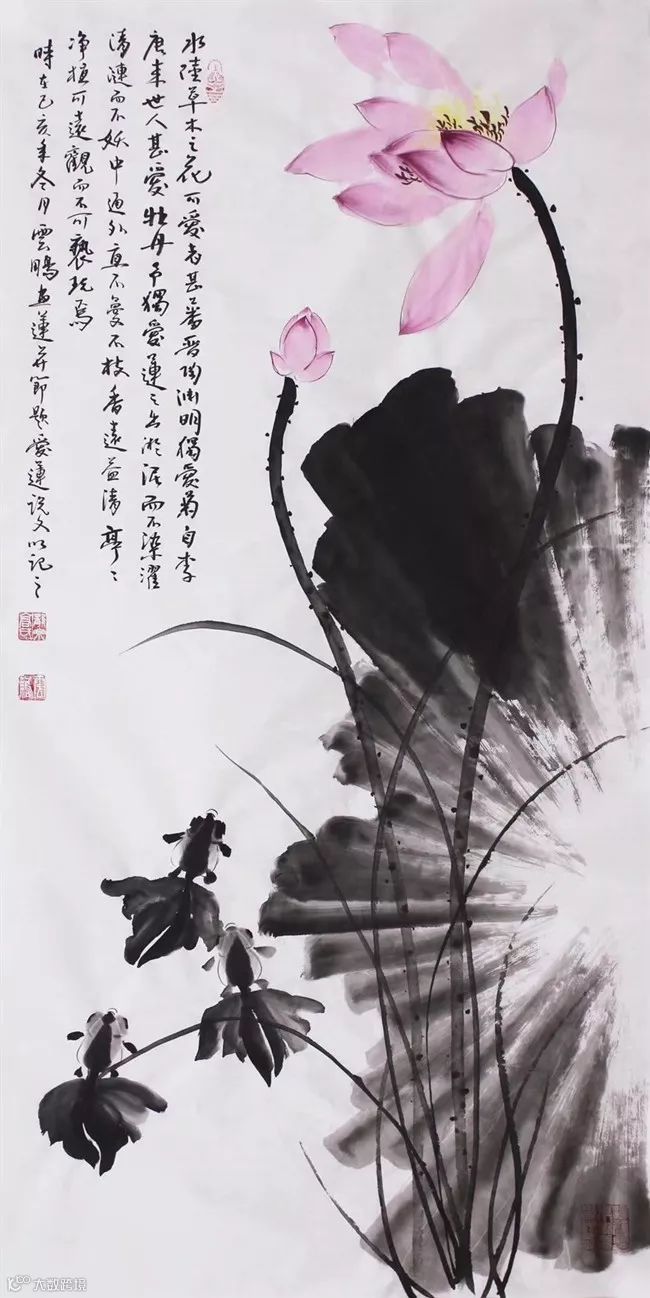 水陸草木之花可愛者甚蕃晋陶渊明獨愛菊自李
唐来世人甚愛牡丹予獨愛蓮之出淤泥而不染濯
清漣而不妖中通外直不蔓不枝香遠益清亭〻
净植可遠觀而不可褻玩焉
時在己亥年冬月雲鵬畫蓮并節題愛蓮説文以記之
大数跨境